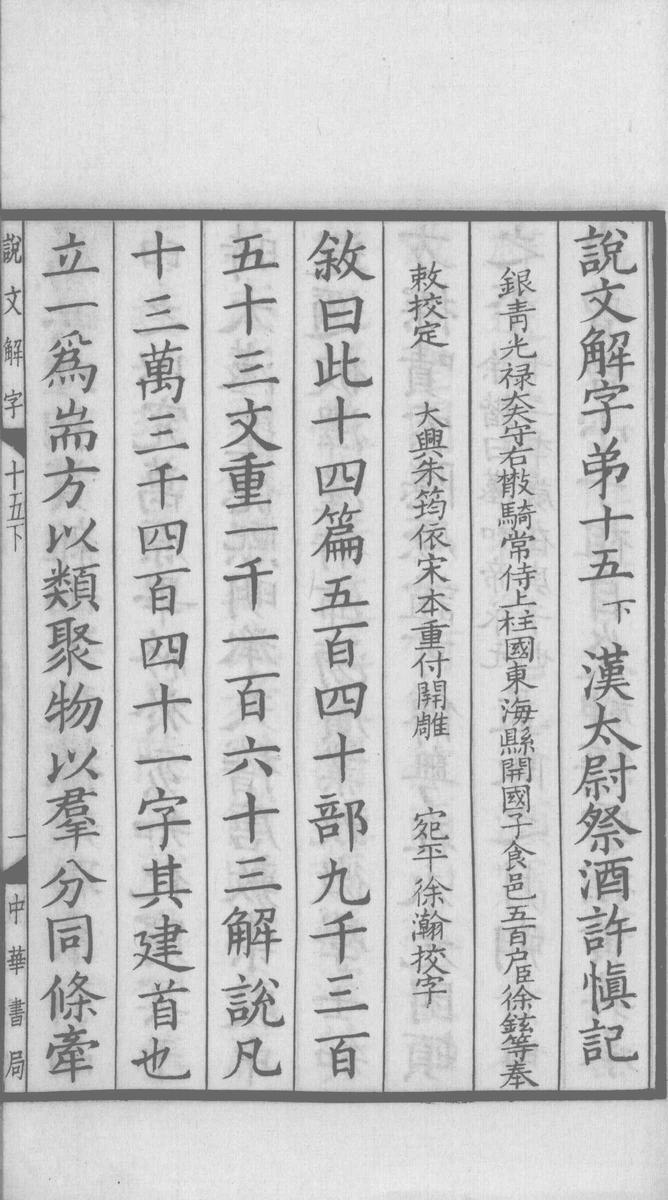 說文解字弟十五下 漢太尉祭酒許愼記
銀青光禄大夫守右散騎常侍上柱國東海縣開國子食邑五百户臣徐鉉等奉
敕挍定 大興朱筠依宋本重付開雕 宛平徐瀚挍字
敘曰此十四篇五百四十部九千三百
五十三文重一千一百六十三解說凡
十三萬三千四百四十一字其建首也
立一爲耑方以類聚物以羣分同條牽
說文解字 十五下 一 中華書局